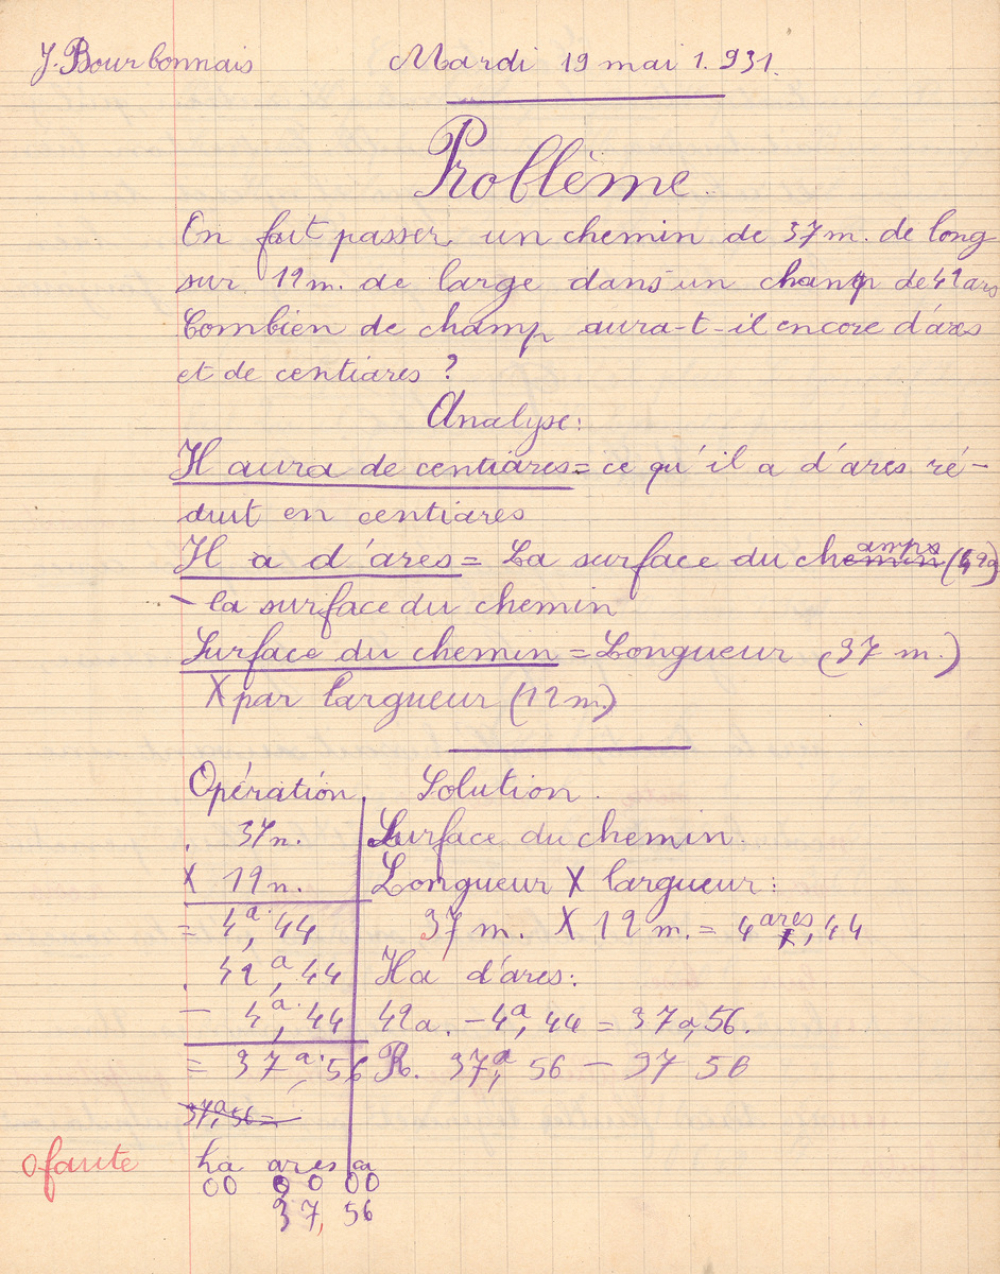 J. Bourbonnais
Mardi 19 mai 1.931.
Problème.
On fait passer un chemin de 37m. de long
sur 12m. de large dans un champ de 42 ars
Combien de champ aura-t-il encore d'ares
et de centiares ?
Analyse:
Il aura de centiares = ce qu'il a d'ares ré-
duit en centiares
Il a d'ares = La surface du champs (42a)
- la surface du chemin
Surface du chemin = Longueur (37 m.)
X par largueur (12m.)
Opération. Solution.
37m. Surface du chemin.
X 12m. Longueur X largueur :
= 4a,44 37 m. X 12 m. = 4 ares, 44
42a,44 Il a d'ares:
- 4a,44 42a. - 4a,44 = 37a,56.
= 37a,56 R. 37a,56 - 37 56
37a,56 =
0 faute
ha ares ca
00 00 00
37, 56